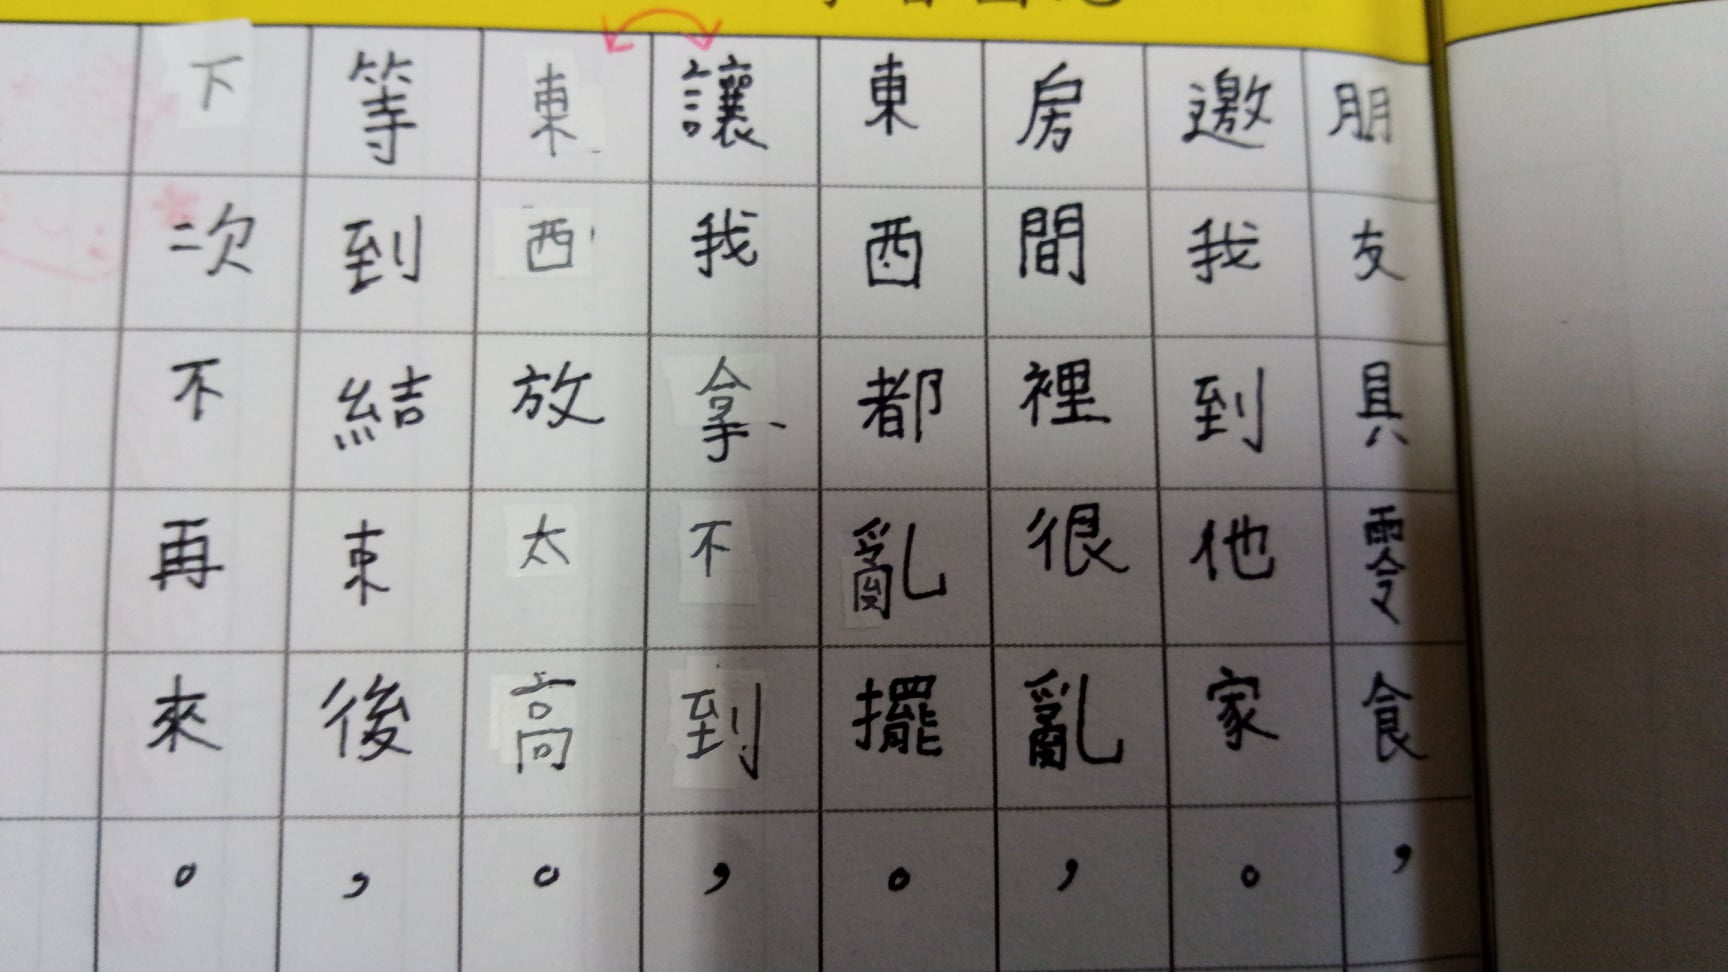 朋友具零食，
邀我到他家。
房間裡很亂，
東西都亂擺。
讓我拿不到，
東西放太高。
等到結束後，
下次不再來。